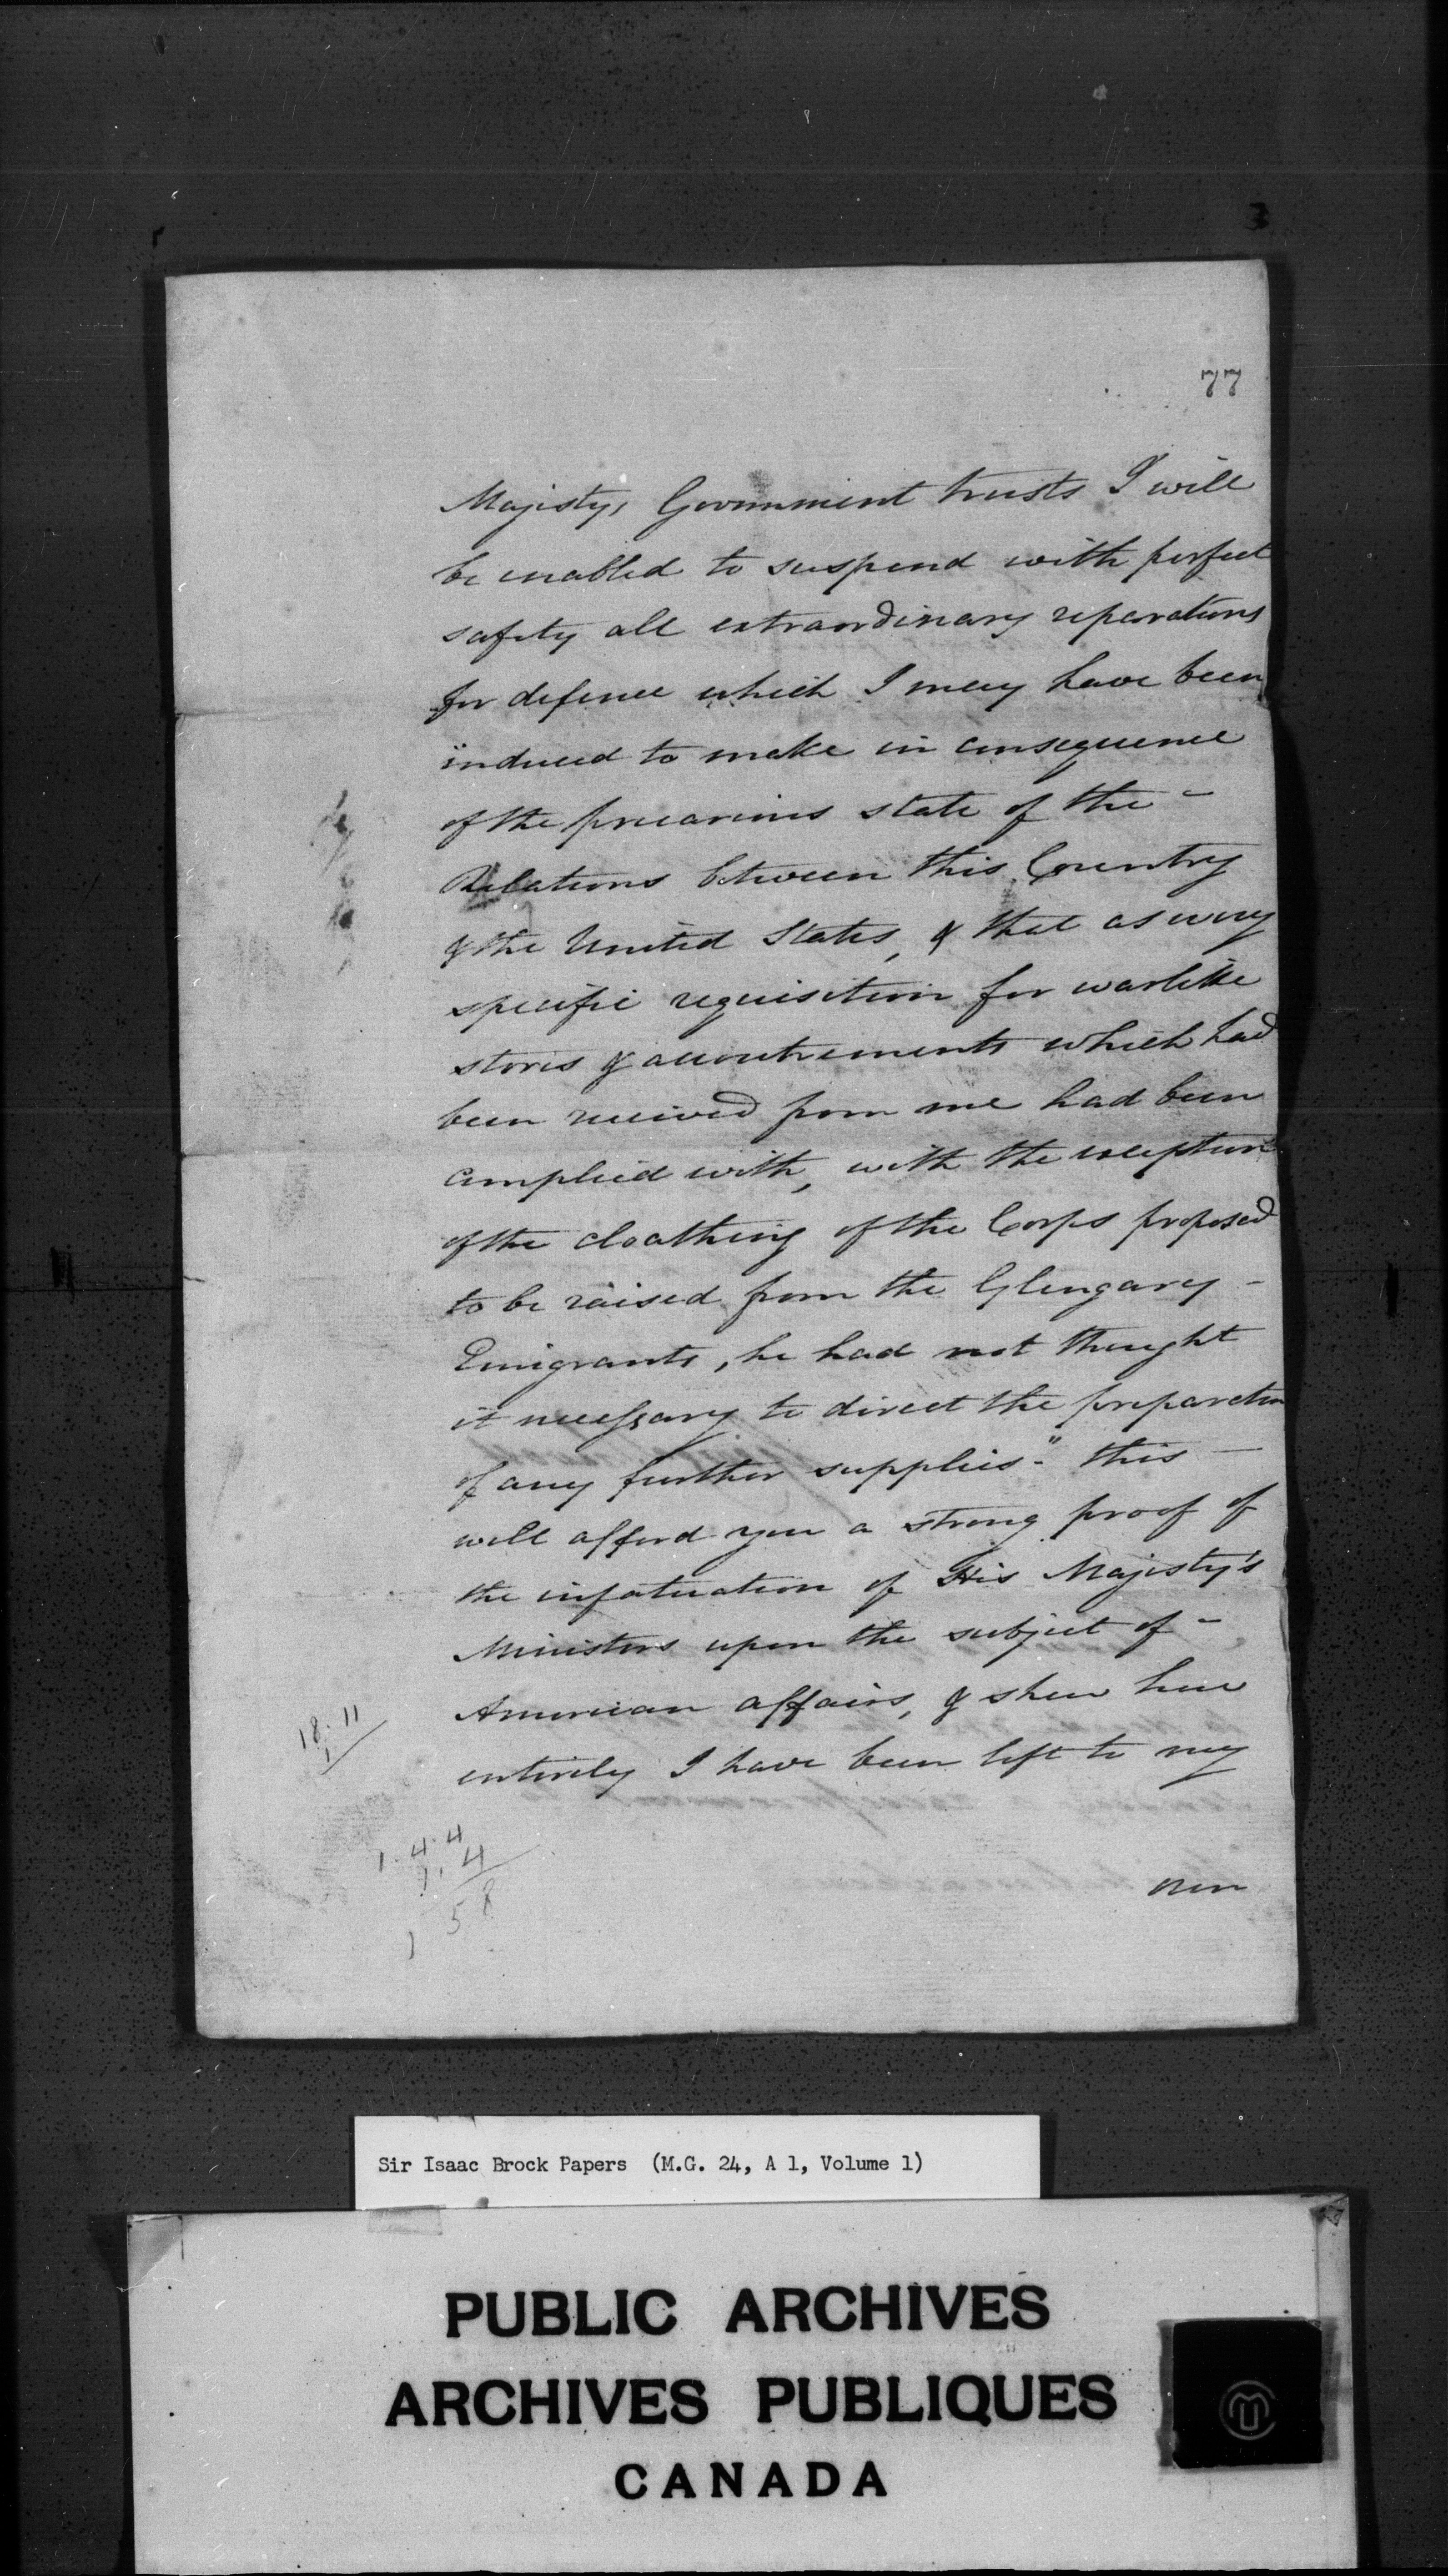 77
Majesty's Government trusts I will
be enabled to suspend with perfect
safety all extraordinary reparations
for defence which I may have been
induced to make in consequence
of the precarious state of the -
Relations between this Country
& the United States, & that as every
specific requisition for warlike
stores & accoutrements which had
been received from me had been
complied with, with the exception
of the cloathing of the Corps proposed
to be raised from the Glengary -
Emigrants, he had not thought
it necessary to direct the preparation
of any further supplies." this -
will afford you a strong proof of
the infatuation of His Majesty's
Ministers upon the subject of -
American affairs, & shew how
entirely I have been left to my
own
18. 11
1. 4. 4
1. 4
1 5 8
Sir Isaac Brock Papers (M.G. 24, A 1, Volume 1)
PUBLIC ARCHIVES
ARCHIVES PUBLIQUES
CANADA